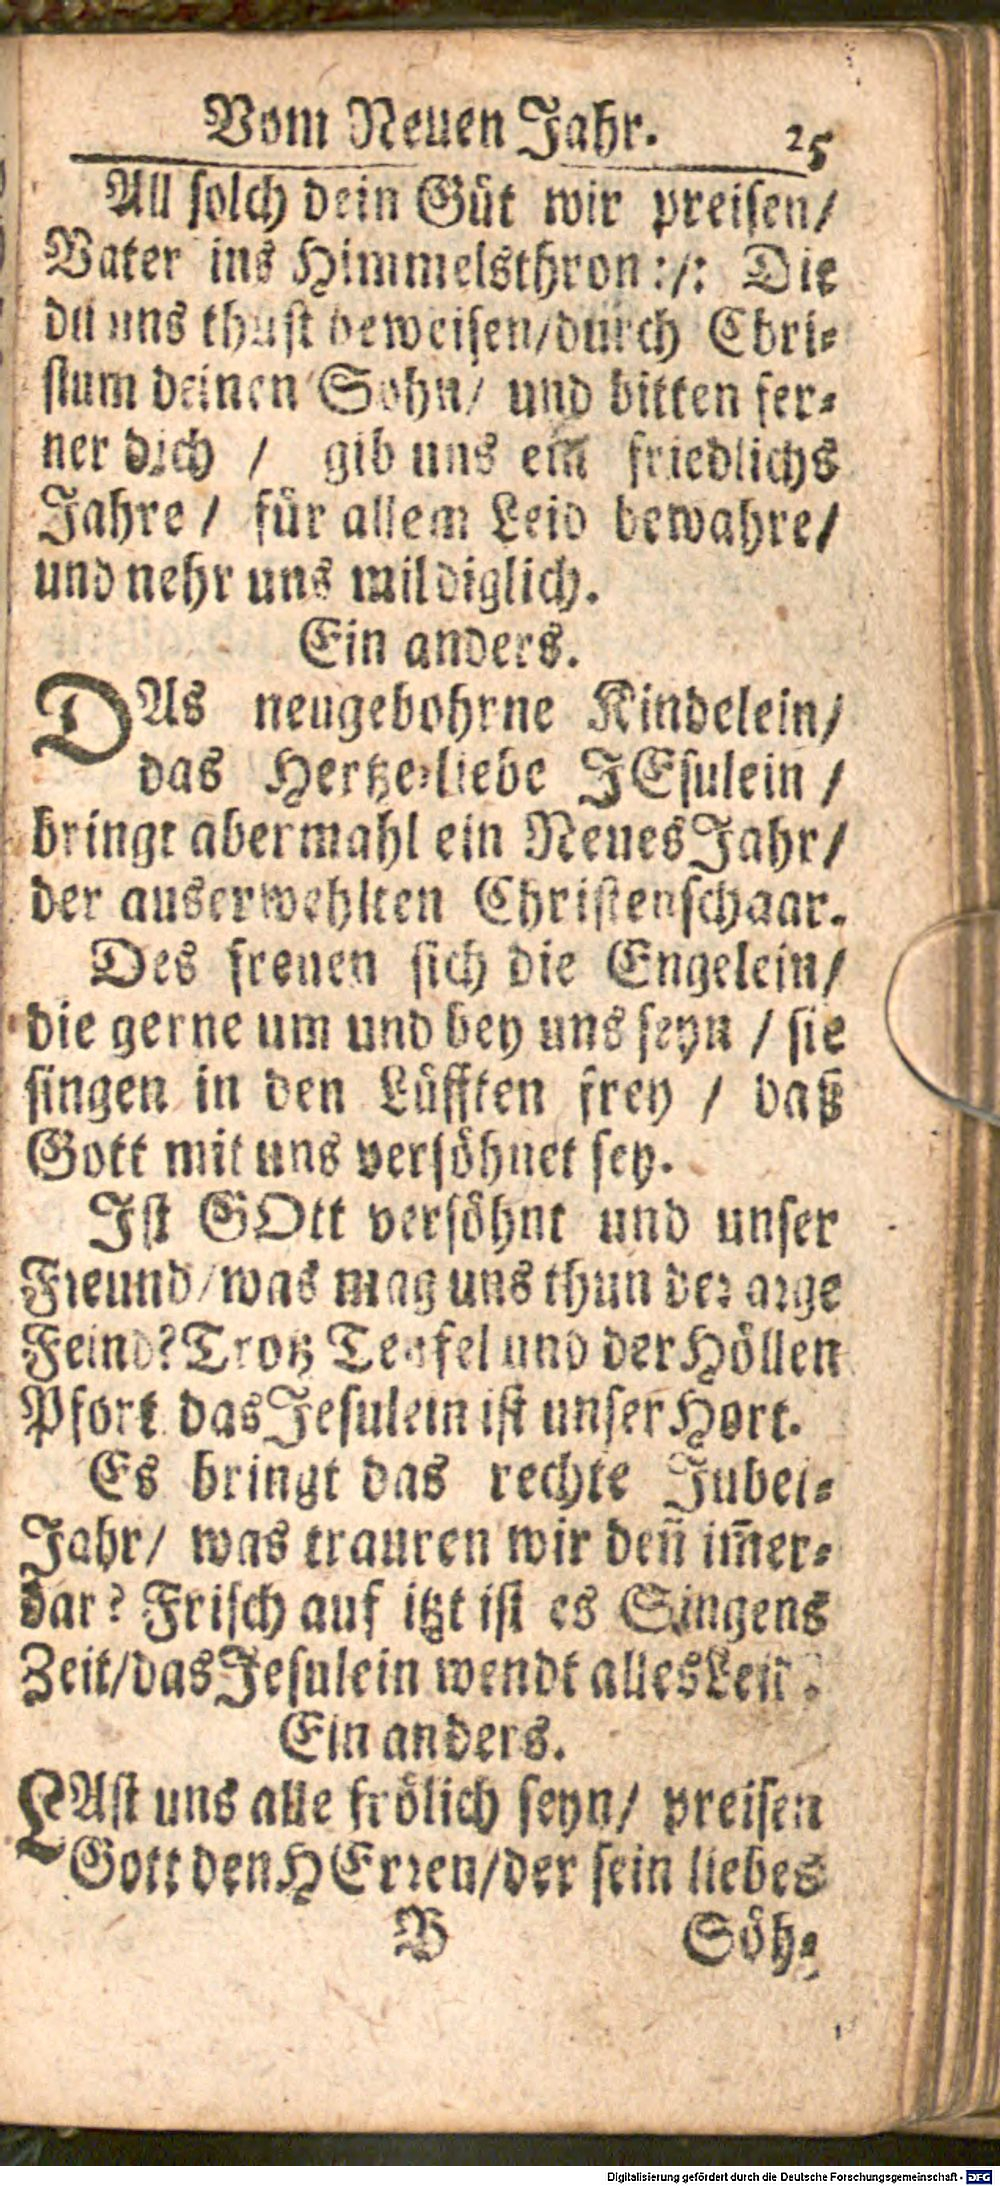 Vom Neuen Jahr. 25
All solch dein Güt wir preisen/
Vater ins Himmelsthron:/: Die
du uns thust beweisen/durch Chri-
stum deinen Sohn/ und bitten fer-
ner dich / gib uns ein friedlichs
Jahre / für allem Leid bewahre/
und nehr uns mildiglich.
Ein anders.
DAs neugebohrne Kindelein/
das Hertzerliebe JEsulein /
bringt abermahl ein Neues Jahr/
der auserwehlten Christenschaar.
Des freuen sich die Engelein/
die gerne um und bey uns seyn / sie
singen in den Lüfften frey / daß
Gott mit uns versöhnet sey.
Ist GOtt versöhnt und unser
Freund/was mag uns thun der arge
Feind? Trotz Teufel und der Höllen
Pfort das Jesulein ist unser Hort.
Es bringt das rechte Jubel-
Jahr/ was trauren wir deñ im̃er-
dar? Frisch auf itzt ist es Singens
Zeit/das Jesulein wendt alles Leid.
Ein anders.
LAst uns alle frölich seyn/ preisen
Gott den HErren/der sein liebes
B Söh-
Digitalisierung gefördert durch die Deutsche Forschungsgemeinschaft - DFG